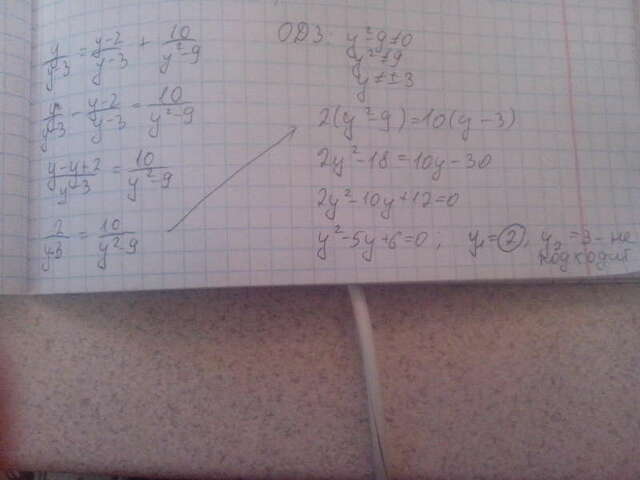 y/(y-3) = (y-2)/(y-3) + 10/(y²-9)
y/(y-3) - (y-2)/(y-3) = 10/(y²-9)
(y-y+2)/(y-3) = 10/(y²-9)
2/(y-3) = 10/(y²-9)
ОДЗ: y²-9≠0
y²≠9
y≠±3
2(y²-9)=10(y-3)
2y²-18=10y-30
2y²-10y+12=0
y²-5y+6=0; y₁=2, y₂=3-не
подходит